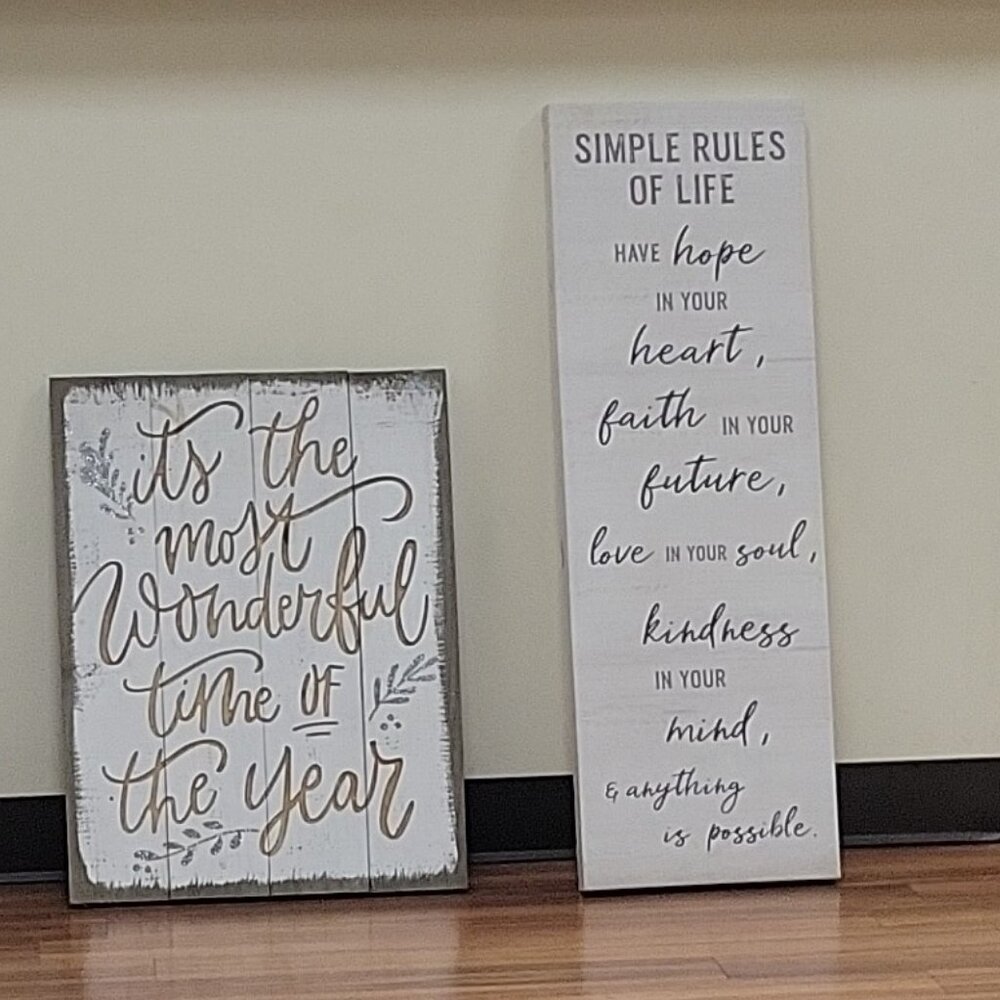 it's the
most
Wonderful
time OF
the year
SIMPLE RULES
OF LIFE
HAVE hope
IN YOUR
heart,
faith IN YOUR
future,
love IN YOUR soul,
kindness
IN YOUR
mind,
& anything
is possible.